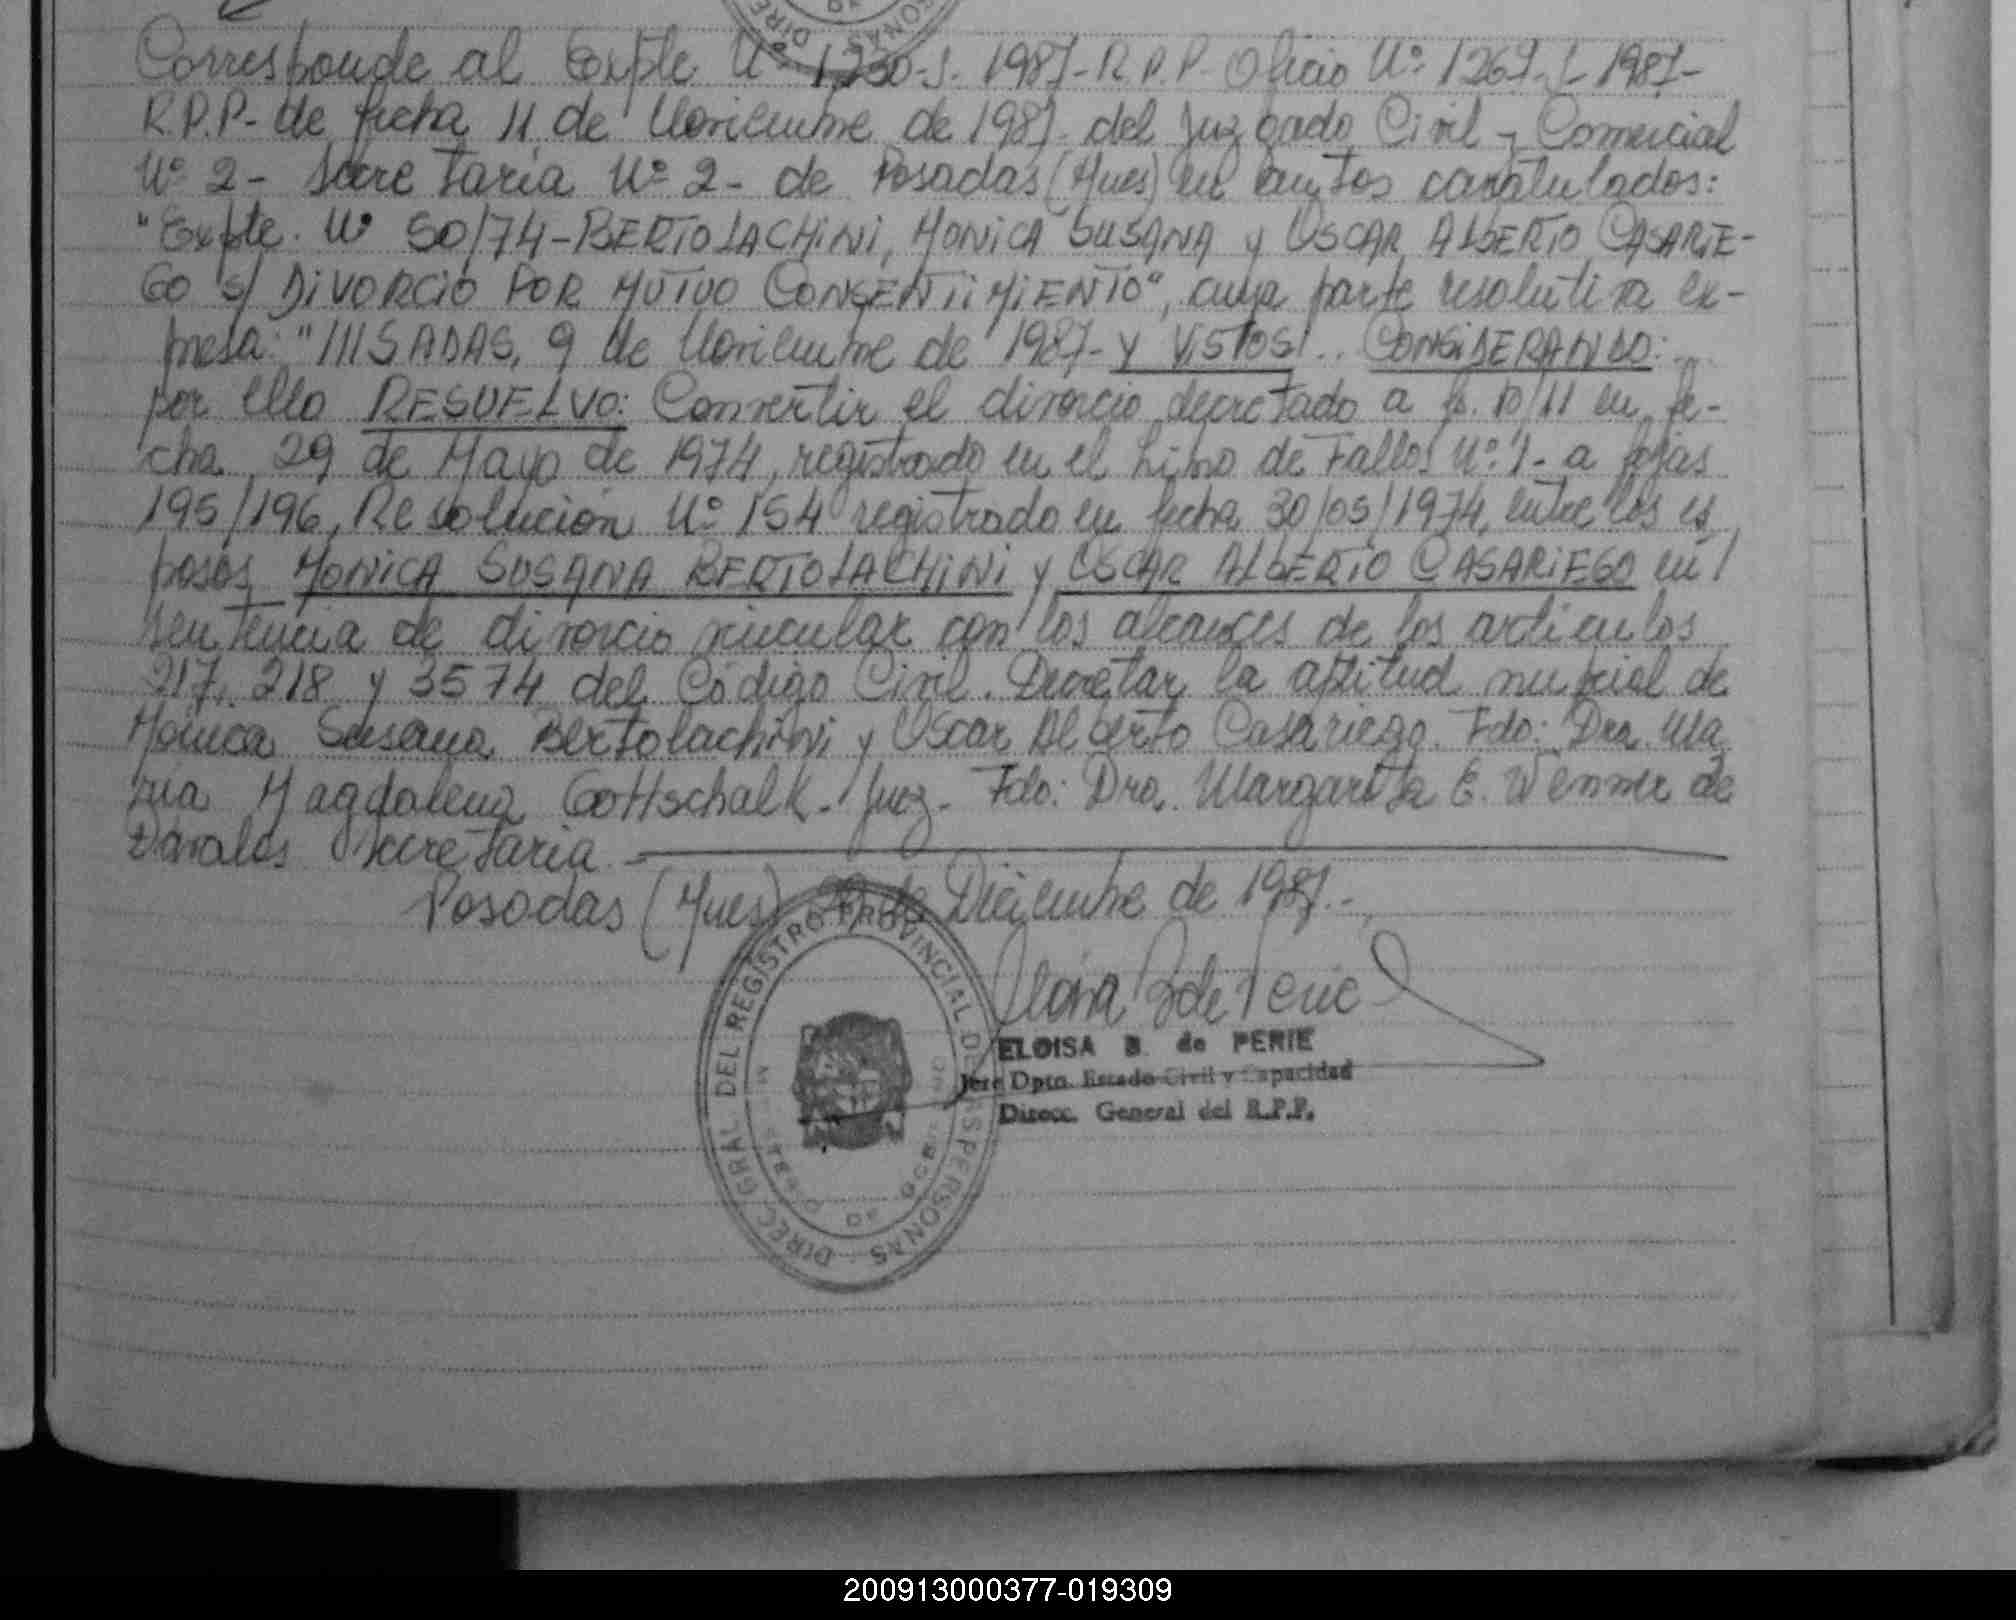 Corresponde al Expte. Nº 1230-J-1987-R.P.P- Oficio Nº 1269- -1987-
R.P.P- de fecha 11 de Noviembre de 1987- del Juzgado Civil y Comercial
Nº 2- Secretaria Nº 2- de Posadas (Mnes) en autos caratulados:
"Expte. Nº 50/74-BERTOLACHINI, MONICA SUSANA y OSCAR ALBERTO CASARIE-
GO s/ DIVORCIO POR MUTUO CONSENTIMIENTO", cuya parte resolutiva ex-
presa: "///SADAS, 9 de Noviembre de 1987- Y VISTOS!.. CONSIDERANDO:..
por ello RESUELVO: Convertir el divorcio decretado a fs. 10/11 en fe-
cha 29 de Mayo de 1974, registrado en el Libro de Fallos Nº 1- a fojas
195/196, Resolución Nº 154 registrado en fecha 30/05/1974, entre los es
posos MONICA SUSANA BERTOLACHINI y OSCAR ALBERTO CASARIEGO en/
sentencia de divorcio vincular con los alcances de los articulos
217, 218 y 3574 del Código Civil. Decretar la aptitud nupcial de
Monica Susana Bertolachini y Oscar Alberto Casariego. Fdo: Dra. Ma
ria Magdalena Gottschalk- Juez- Fdo: Dra. Margarita E. Wenner de
Davalos Secretaria.
Posadas (Mnes) de Diciembre de 1987.-
ELOISA B. de PERIE
Jefe Dpto. Estado Civil y Capacidad
Direcc. General del R.P.P.
DIREC. GRAL DEL REGISTRO PROVINCIAL DE LAS PERSONAS
200913000377-019309